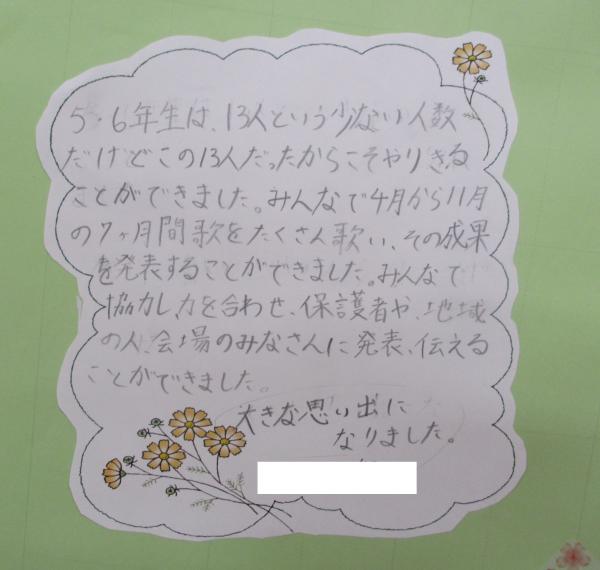 5・6年生は、13人という少ない人数
だけどこの13人だったからこそやりきる
ことができました。みんなで4月から11月
の7ヶ月間歌をたくさん歌い、その成果
を発表することができました。みんなで
協力し、力を合わせ、保護者や、地域
の人、会場のみなさんに発表、伝える
ことができました。
大きな思い出に
なりました。